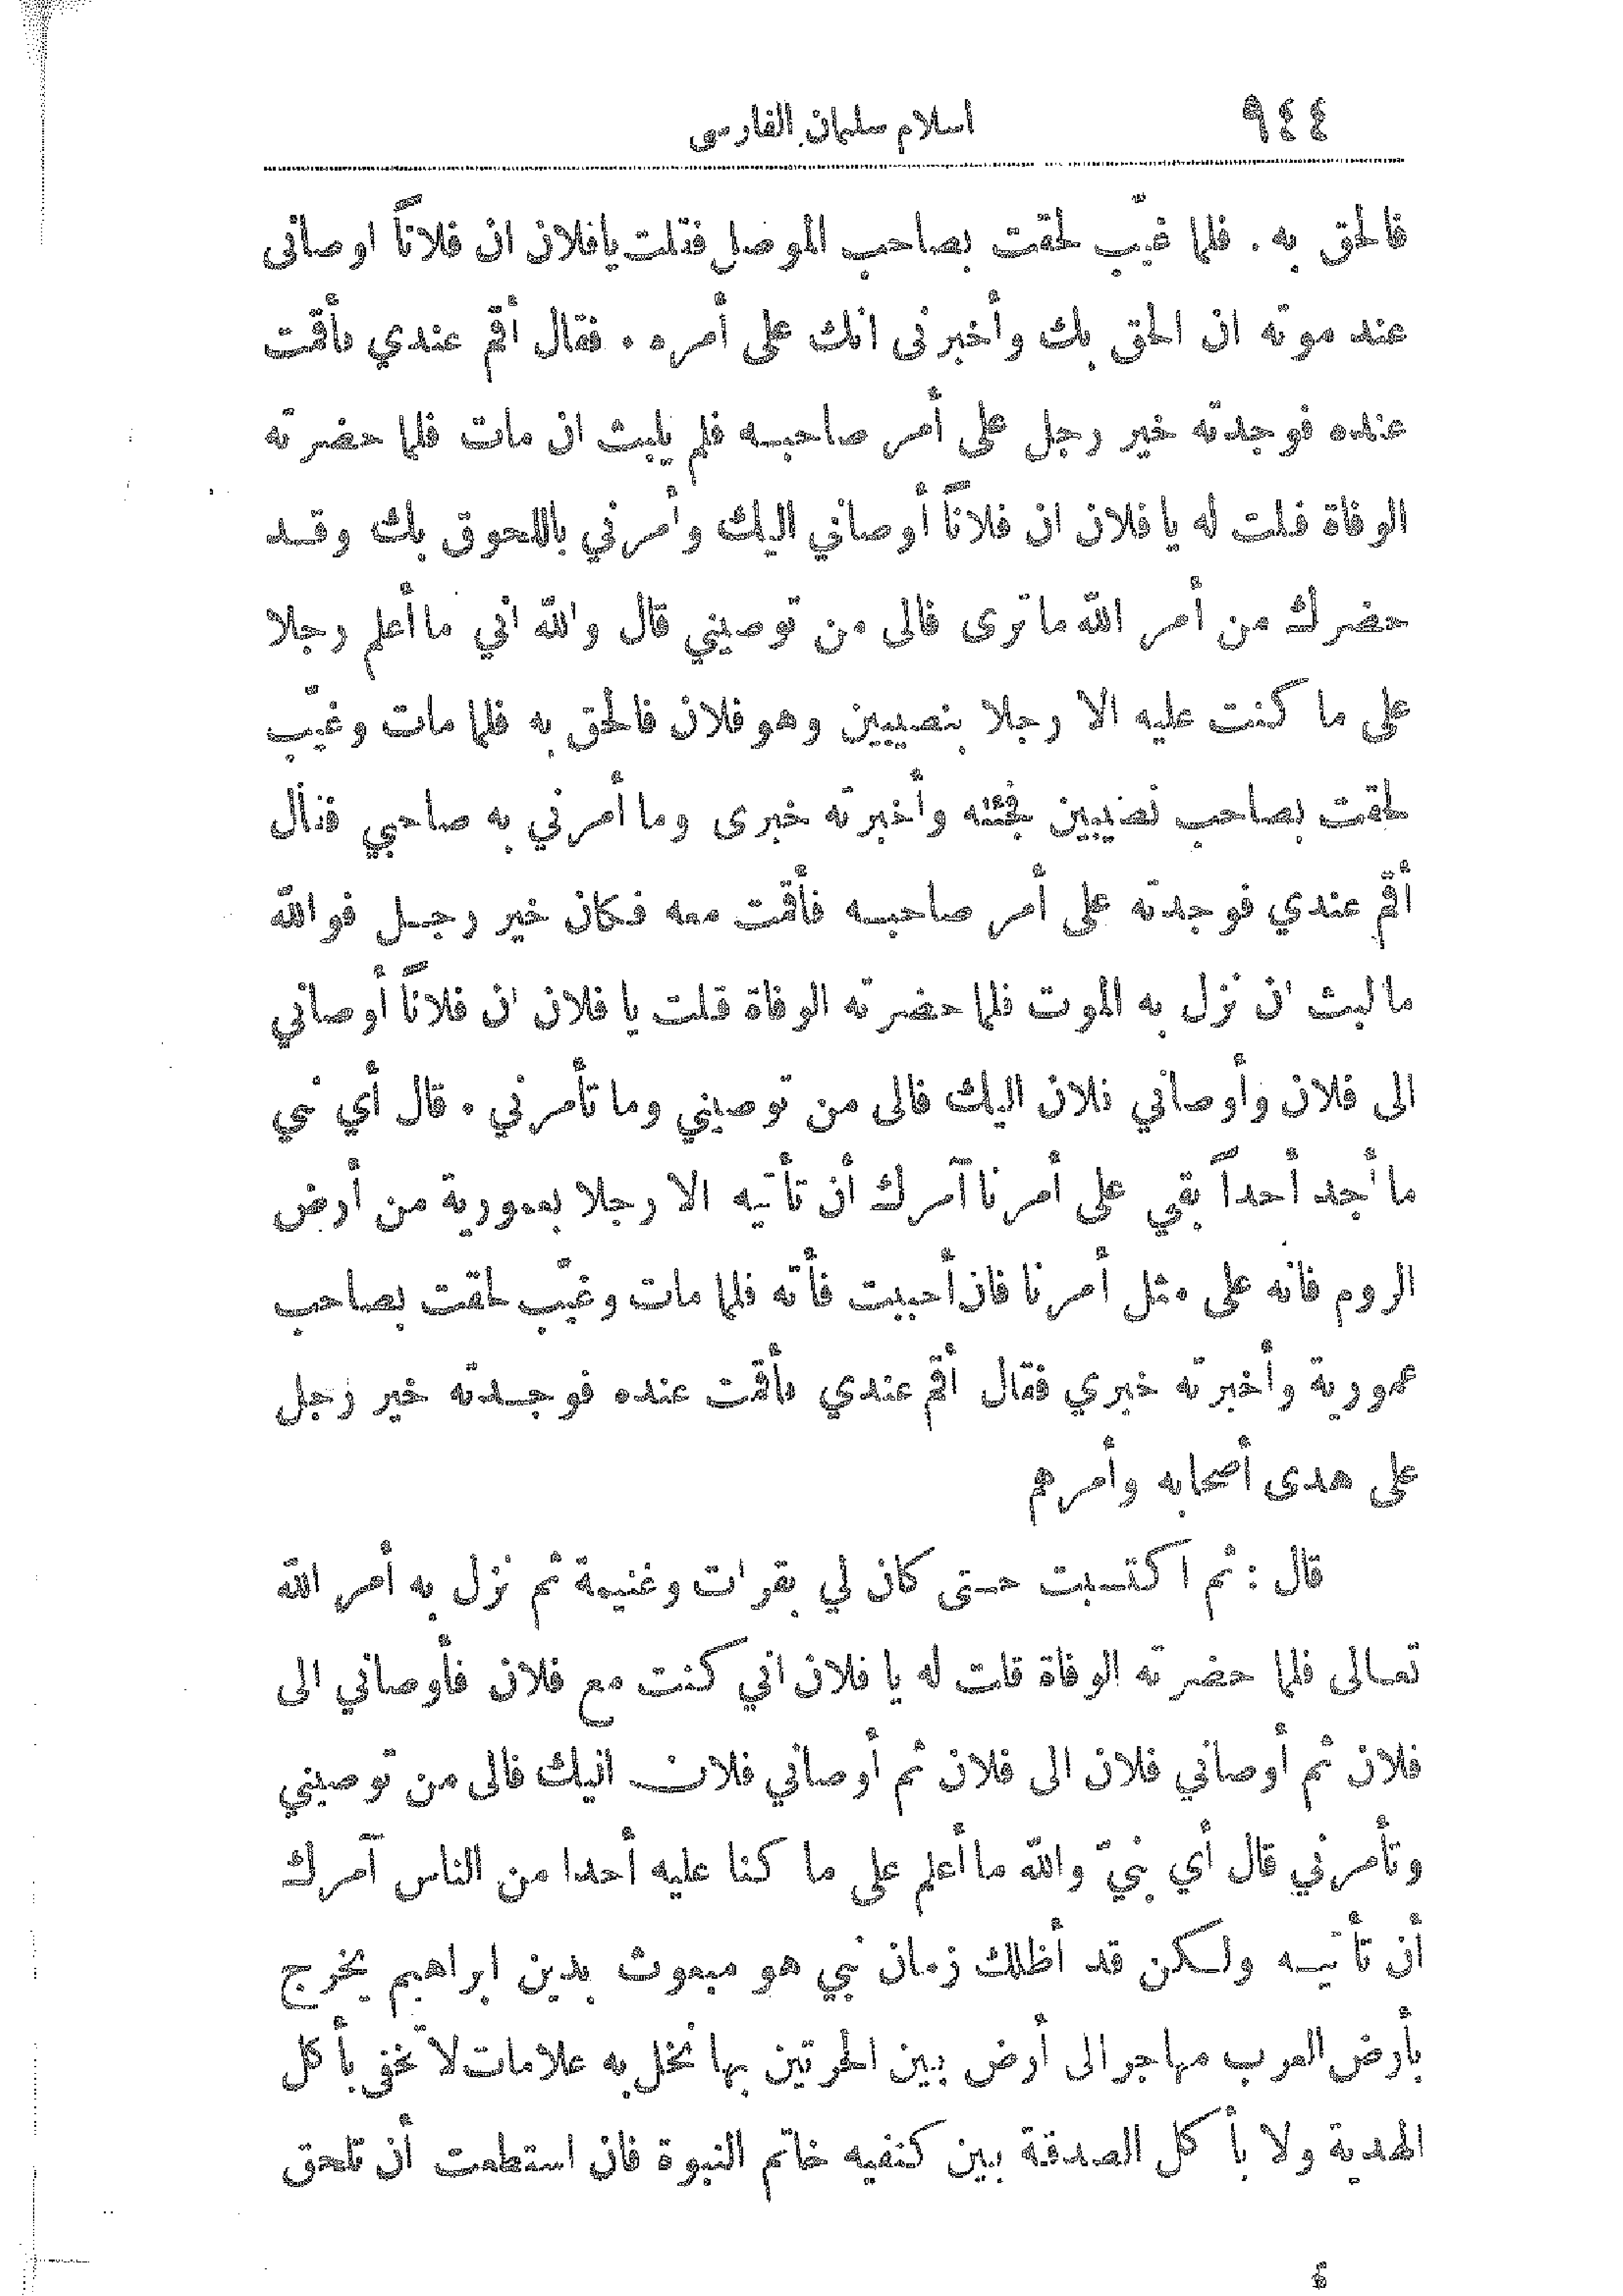 ٩٤٤
اسلام سلمان الفارسى
فالحق به . فلما غيّب لحقت بصاحب الموصل فقلت يافلان ان فلاناً اوصانى
عند موته ان الحق بك وأخبرنى انك على أمره . فقال أقم عندي فأقمت
عنده فوجدته خير رجل على أمر صاحبه فلم يلبث ان مات فلما حضرته
الوفاة قلت له يا فلان ان فلاناً أوصاني اليك وأمرني باللحوق بك وقد
حضرك من أمر الله ما ترى فالى من توصيني قال والله اني ما أعلم رجلا
على ما كنت عليه الا رجلا بنصيبين وهو فلان فالحق به فلما مات وغيّب
لحقت بصاحب نصيبين فجئته وأخبرته خبرى وما أمرني به صاحبي فقال
أقم عندي فوجدته على أمر صاحبه فأقمت معه فكان خير رجل فوالله
ما لبث ان نزل به الموت فلما حضرته الوفاة قلت يا فلان ان فلاناً أوصاني
الى فلان وأوصاني فلان اليك فالى من توصيني وما تأمرني . قال أي بني
ما أجد أحداً بقي على أمرنا آمرك أن تأتيه الا رجلا بعمورية من أرض
الروم فانه على مثل أمرنا فان أحببت فأته فلما مات وغيّب لحقت بصاحب
عمورية وأخبرته خبري فقال أقم عندي فأقمت عنده فوجدته خير رجل
على هدى أصحابه وأمرهم
قال : ثم اكتسبت حتى كان لي بقرات وغنيمة ثم نزل به أمر الله
تعالى فلما حضرته الوفاة قلت له يا فلان اني كنت مع فلان فأوصاني الى
فلان ثم أوصاني فلان الى فلان ثم أوصاني فلان اليك فالى من توصيني
وتأمرني قال أي بنيّ والله ما أعلم على ما كنا عليه أحدا من الناس آمرك
أن تأتيه ولكن قد أظلك زمان نبي هو مبعوث بدين ابراهيم يخرج
بأرض العرب مهاجر الى أرض بين الحرتين بها نخل به علامات لا تخفى يأكل
الهدية ولا يأكل الصدقة بين كتفيه خاتم النبوة فان استطعت أن تلحق